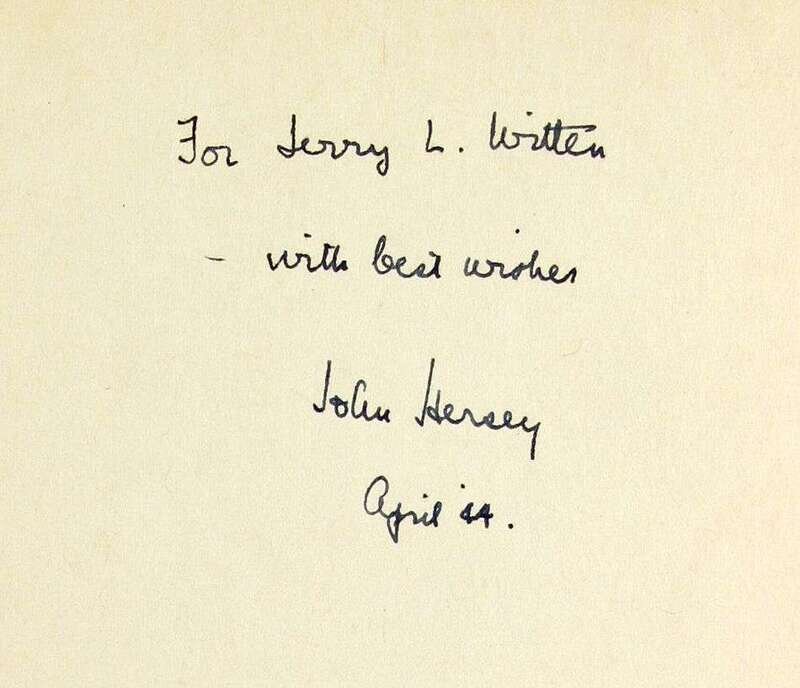 For Jerry L. Witten
– with best wishes
John Hersey
April '44.